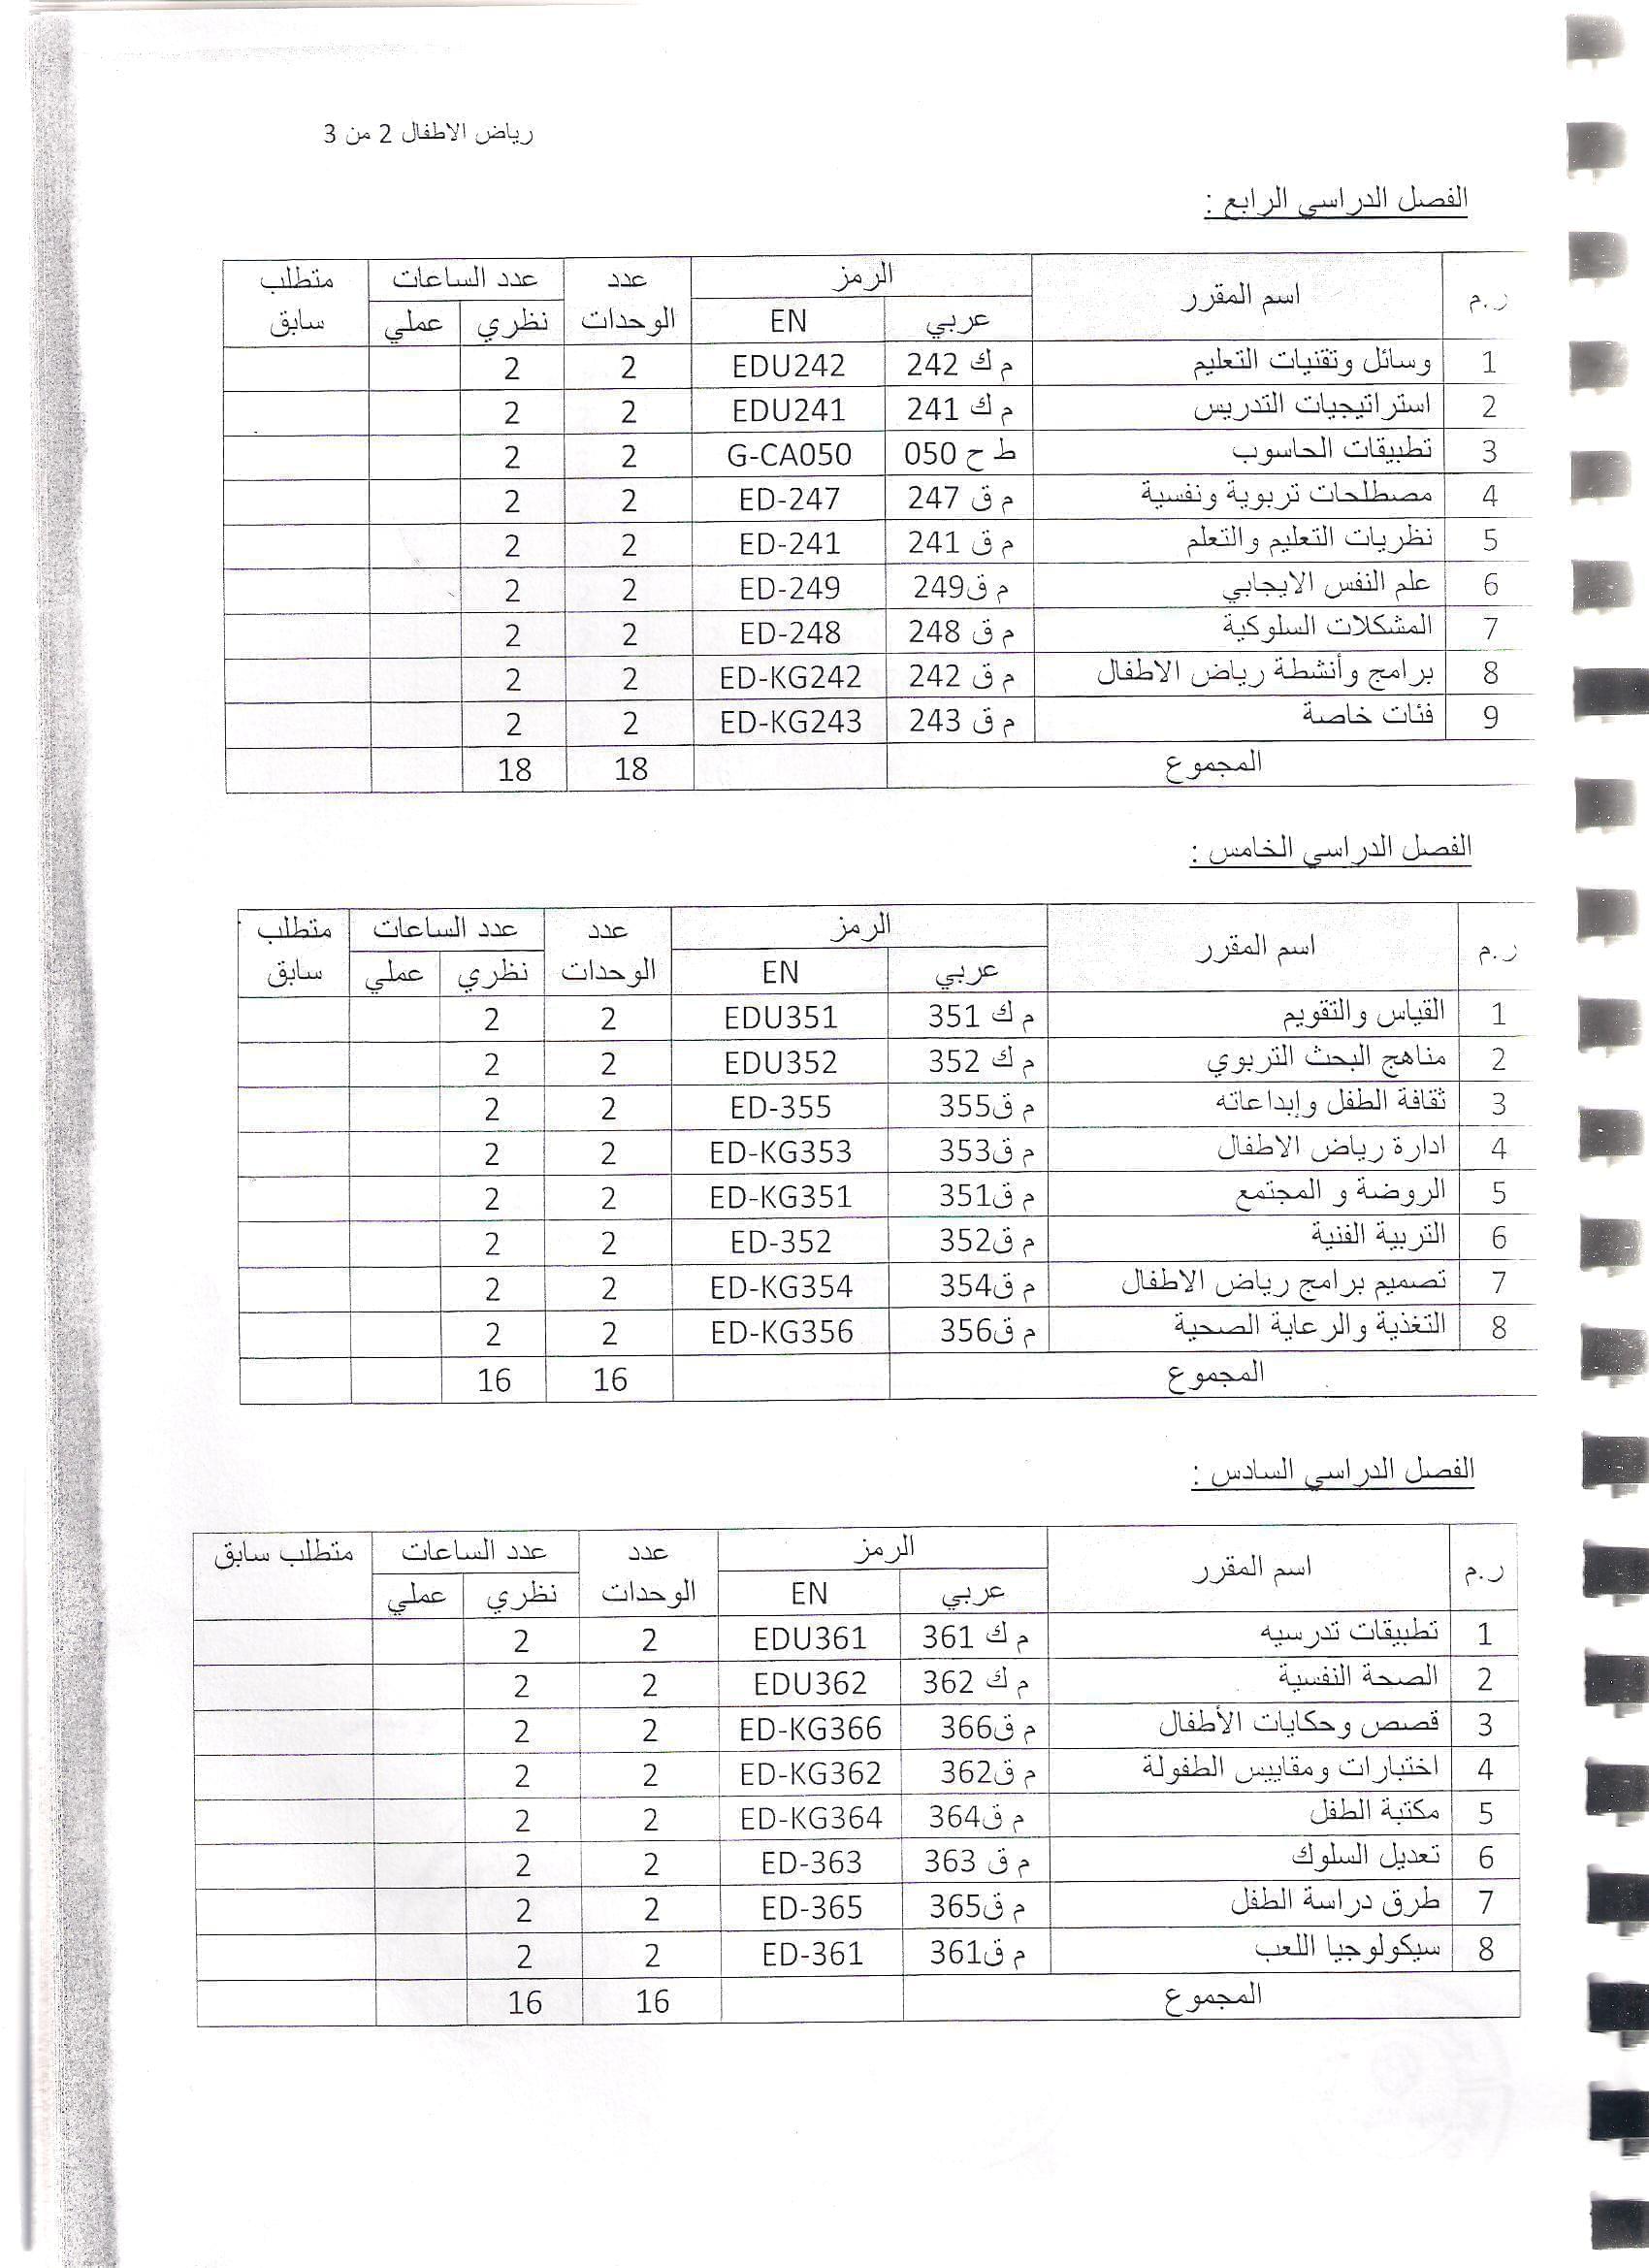 رياض الاطفال 2 من 3
الفصل الدراسي الرابع :
ر.م اسم المقرر الرمز عدد الوحدات عدد الساعات متطلب سابق
عربي EN نظري عملي
1 وسائل وتقنيات التعليم م ك 242 EDU242 2 2
2 استراتيجيات التدريس م ك 241 EDU241 2 2
3 تطبيقات الحاسوب ط ح 050 G-CA050 2 2
4 مصطلحات تربوية ونفسية م ق 247 ED-247 2 2
5 نظريات التعليم والتعلم م ق 241 ED-241 2 2
6 علم النفس الايجابي م ق249 ED-249 2 2
7 المشكلات السلوكية م ق 248 ED-248 2 2
8 برامج وأنشطة رياض الاطفال م ق 242 ED-KG242 2 2
9 فئات خاصة م ق 243 ED-KG243 2 2
المجموع 18 18
الفصل الدراسي الخامس :
ر.م اسم المقرر الرمز عدد الوحدات عدد الساعات متطلب سابق
عربي EN نظري عملي
1 القياس والتقويم م ك 351 EDU351 2 2
2 مناهج البحث التربوي م ك 352 EDU352 2 2
3 ثقافة الطفل وإبداعاته م ق355 ED-355 2 2
4 ادارة رياض الاطفال م ق353 ED-KG353 2 2
5 الروضة و المجتمع م ق351 ED-KG351 2 2
6 التربية الفنية م ق352 ED-352 2 2
7 تصميم برامج رياض الاطفال م ق354 ED-KG354 2 2
8 التغذية والرعاية الصحية م ق356 ED-KG356 2 2
المجموع 16 16
الفصل الدراسي السادس :
ر.م اسم المقرر الرمز عدد الوحدات عدد الساعات متطلب سابق
عربي EN نظري عملي
1 تطبيقات تدرسيه م ك 361 EDU361 2 2
2 الصحة النفسية م ك 362 EDU362 2 2
3 قصص وحكايات الأطفال م ق366 ED-KG366 2 2
4 اختبارات ومقاييس الطفولة م ق362 ED-KG362 2 2
5 مكتبة الطفل م ق364 ED-KG364 2 2
6 تعديل السلوك م ق 363 ED-363 2 2
7 طرق دراسة الطفل م ق365 ED-365 2 2
8 سيكولوجيا اللعب م ق361 ED-361 2 2
المجموع 16 16